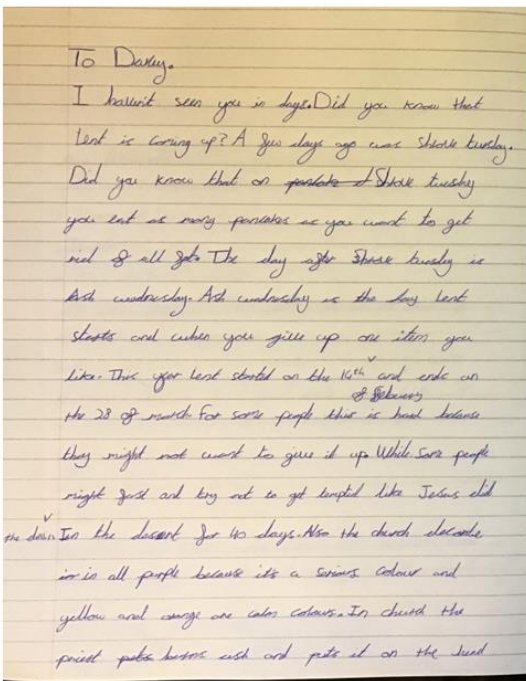 To Darcy.
I havin't seen you in days. Did you know that
Lent is coming up? A few days ago was Shrove tuesday.
Did you know that on pancake d Shrove tuesday
you eat as many pancakes as you want to get
rid of all fat. The day after Shrove tuesday is
Ash wednesday. Ash wednesday is the day Lent
starts and when you give up one item you
like. This year Lent started on the 14th and ends on
of Febuary
the 28 of march For some people this is hard because
they might not want to give it up. While some people
might fast and try not to get tempted like Jesus did
the In the desert for 40 days. Also the church decorate
in all purple because it's a serious colour and
yellow and orange are calm colours. In church the
priest puts burns ash and puts it on the head